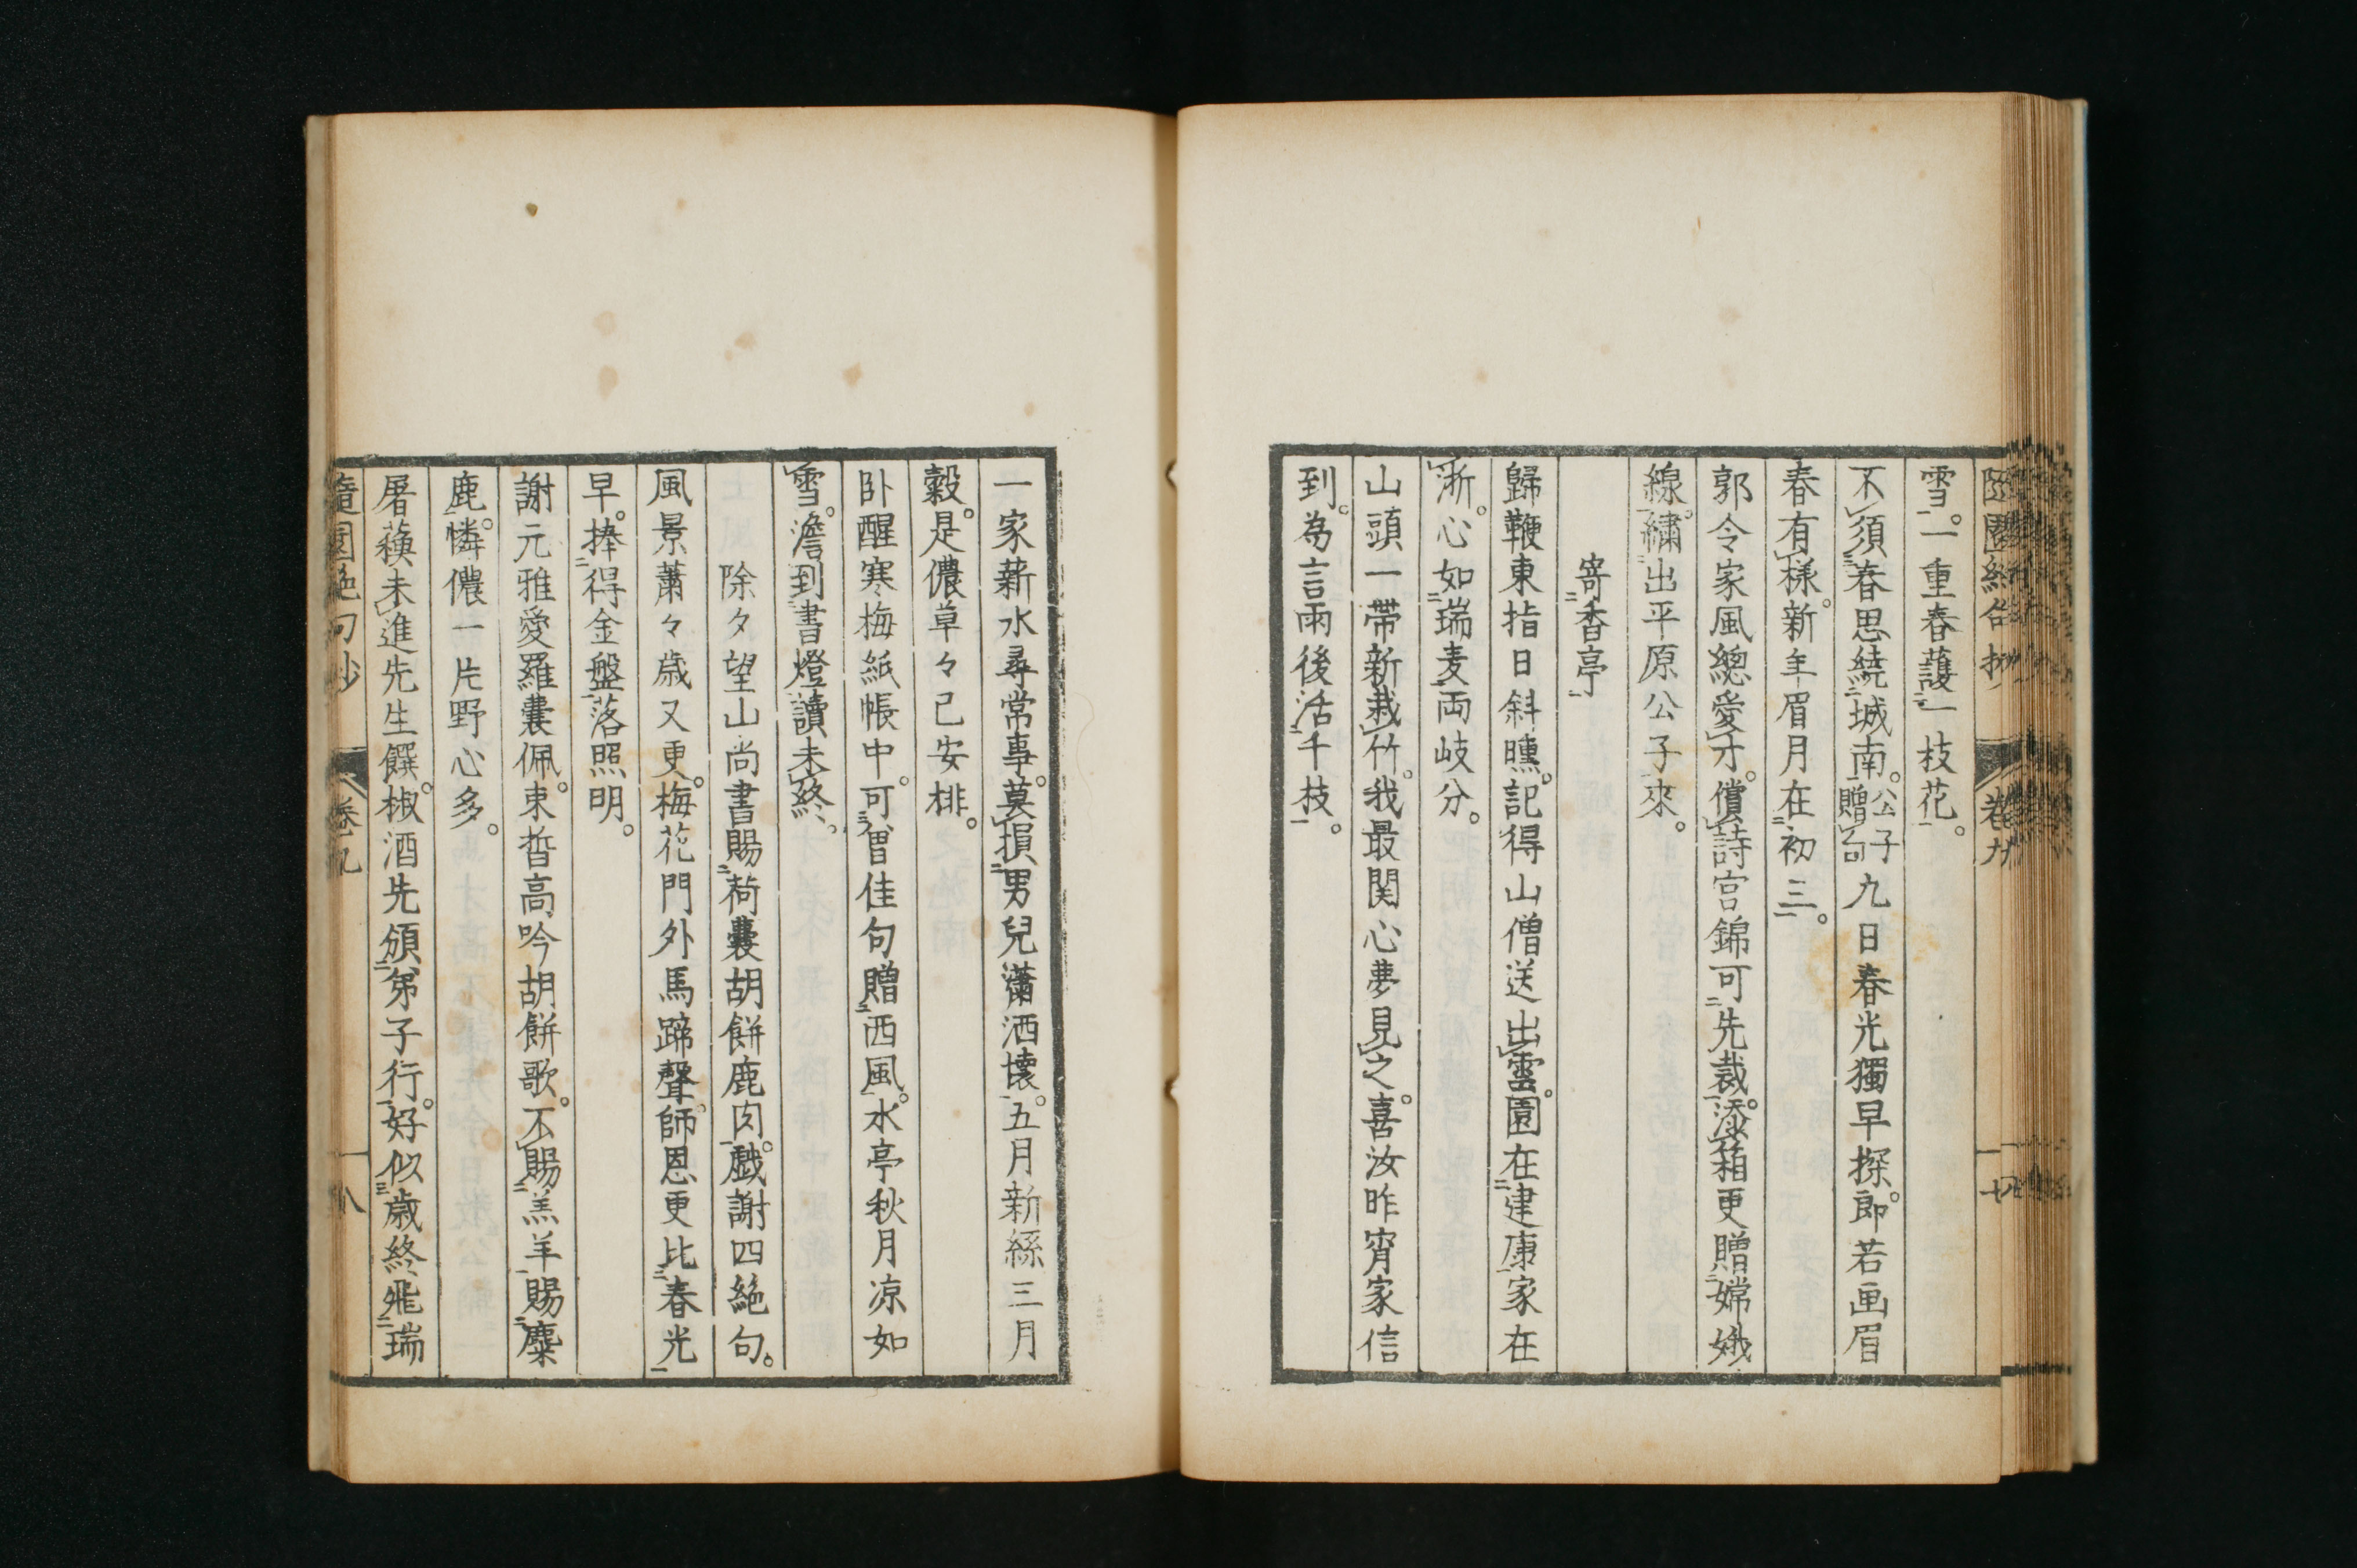 雪。一重春護一枝花。
不須春思繞城南。公子贈句九日春光獨早探。郎若画眉
春有樣。新年眉月在初三。
郭令家風總愛才。償詩宮錦可先裁。添箱更贈嫦娥
線。繡出平原公子來。
寄香亭
歸鞭東指日斜曛。記得山僧送出雲。園在建康家在
浙。心如瑞麦両岐分。
山頭一帶新栽竹。我最関心夢見之。喜汝昨宵家信
到。為言雨後活千枝。
一家薪水尋常事。莫損男兒瀟洒懐。五月新絲三月
穀。是儂草々已安排。
卧醒寒梅紙帳中。可曽佳句贈西風。水亭秋月凉如
雪。澹到書燈讀未終。
除夕望山尚書賜荷囊胡餅鹿肉。戯謝四絶句。
風景蕭々歳又更。梅花門外馬蹄聲。師恩更比春光
早。捧得金盤落照明。
謝元雅愛羅囊佩。東晳高吟胡餅歌。不賜羔羊賜麋
鹿。憐儂一片野心多。
屠蘓未進先生饌。椒酒先頒弟子行。好似歳終飛瑞
隨園絶句抄 卷九 十八